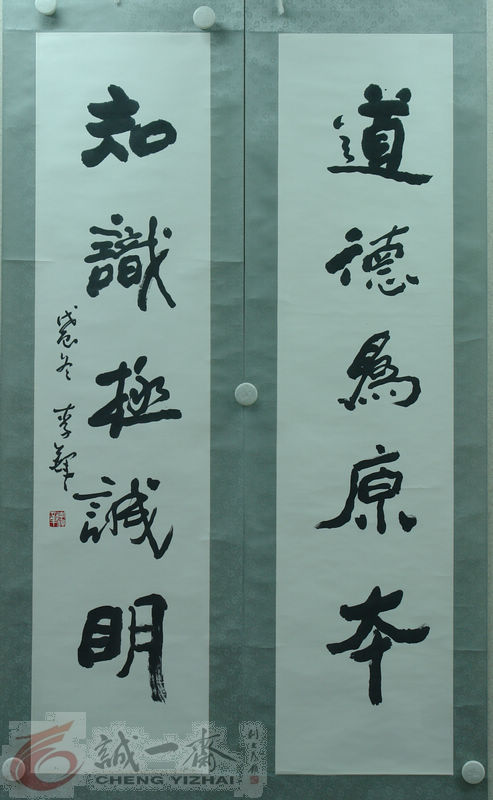 道德為原本
知識極誠明
戊辰冬 李鐸
誠一齋
CHENG YIZHAI